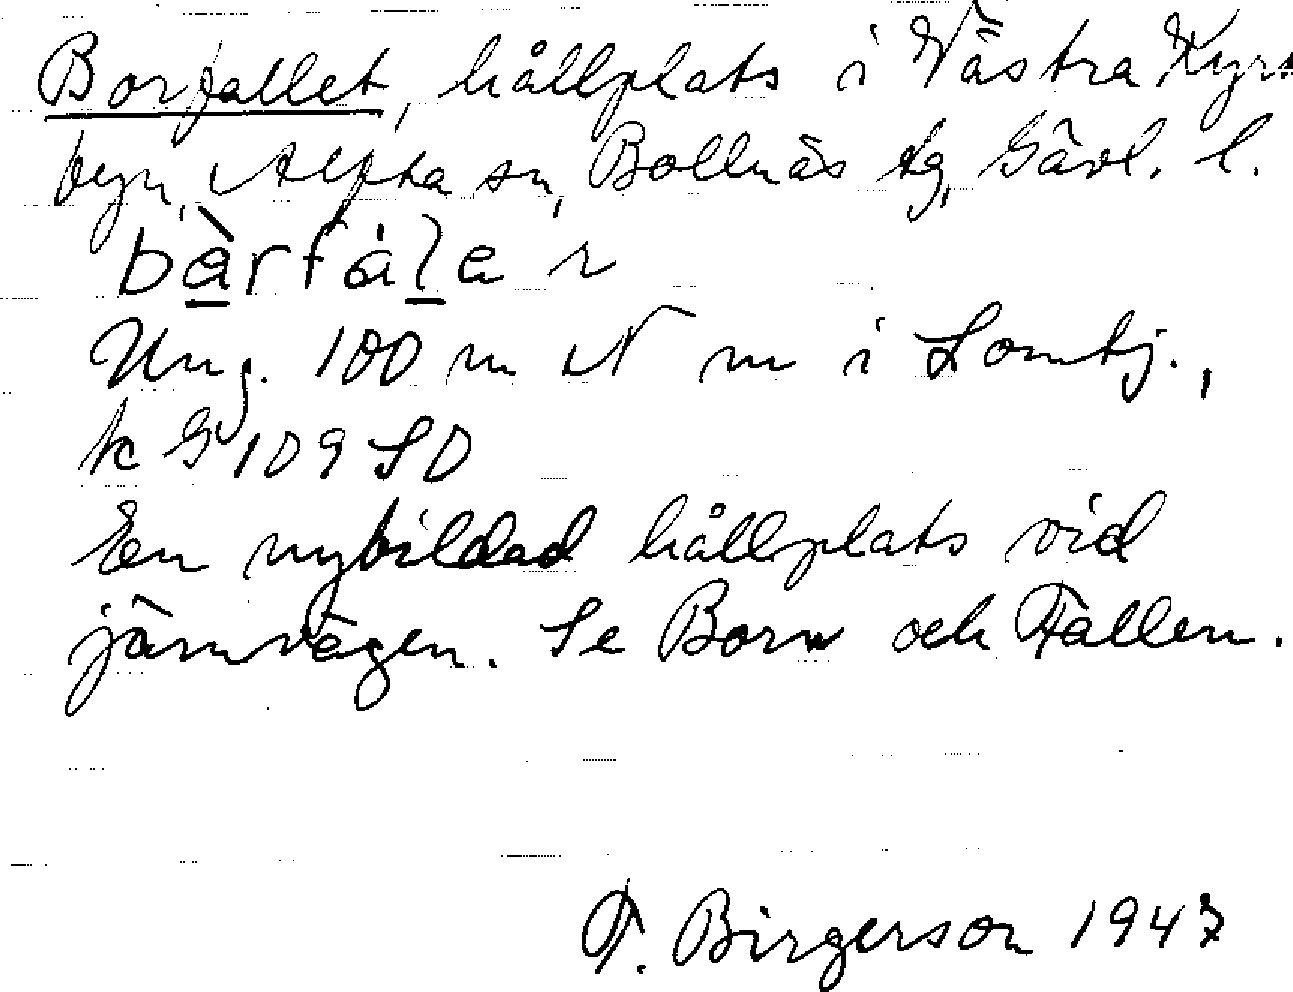 Borfallet, hållplats i Västra Kyrk
byn, Alfta sn, Bollnäs tg, Gävl. l.
bàrfále n
Ung. 100 m N m i Lomtj.,
k G 109 SO
En nybildad hållplats vid
järnvägen. Se Born och Fallen.
F. Birgerson 1947